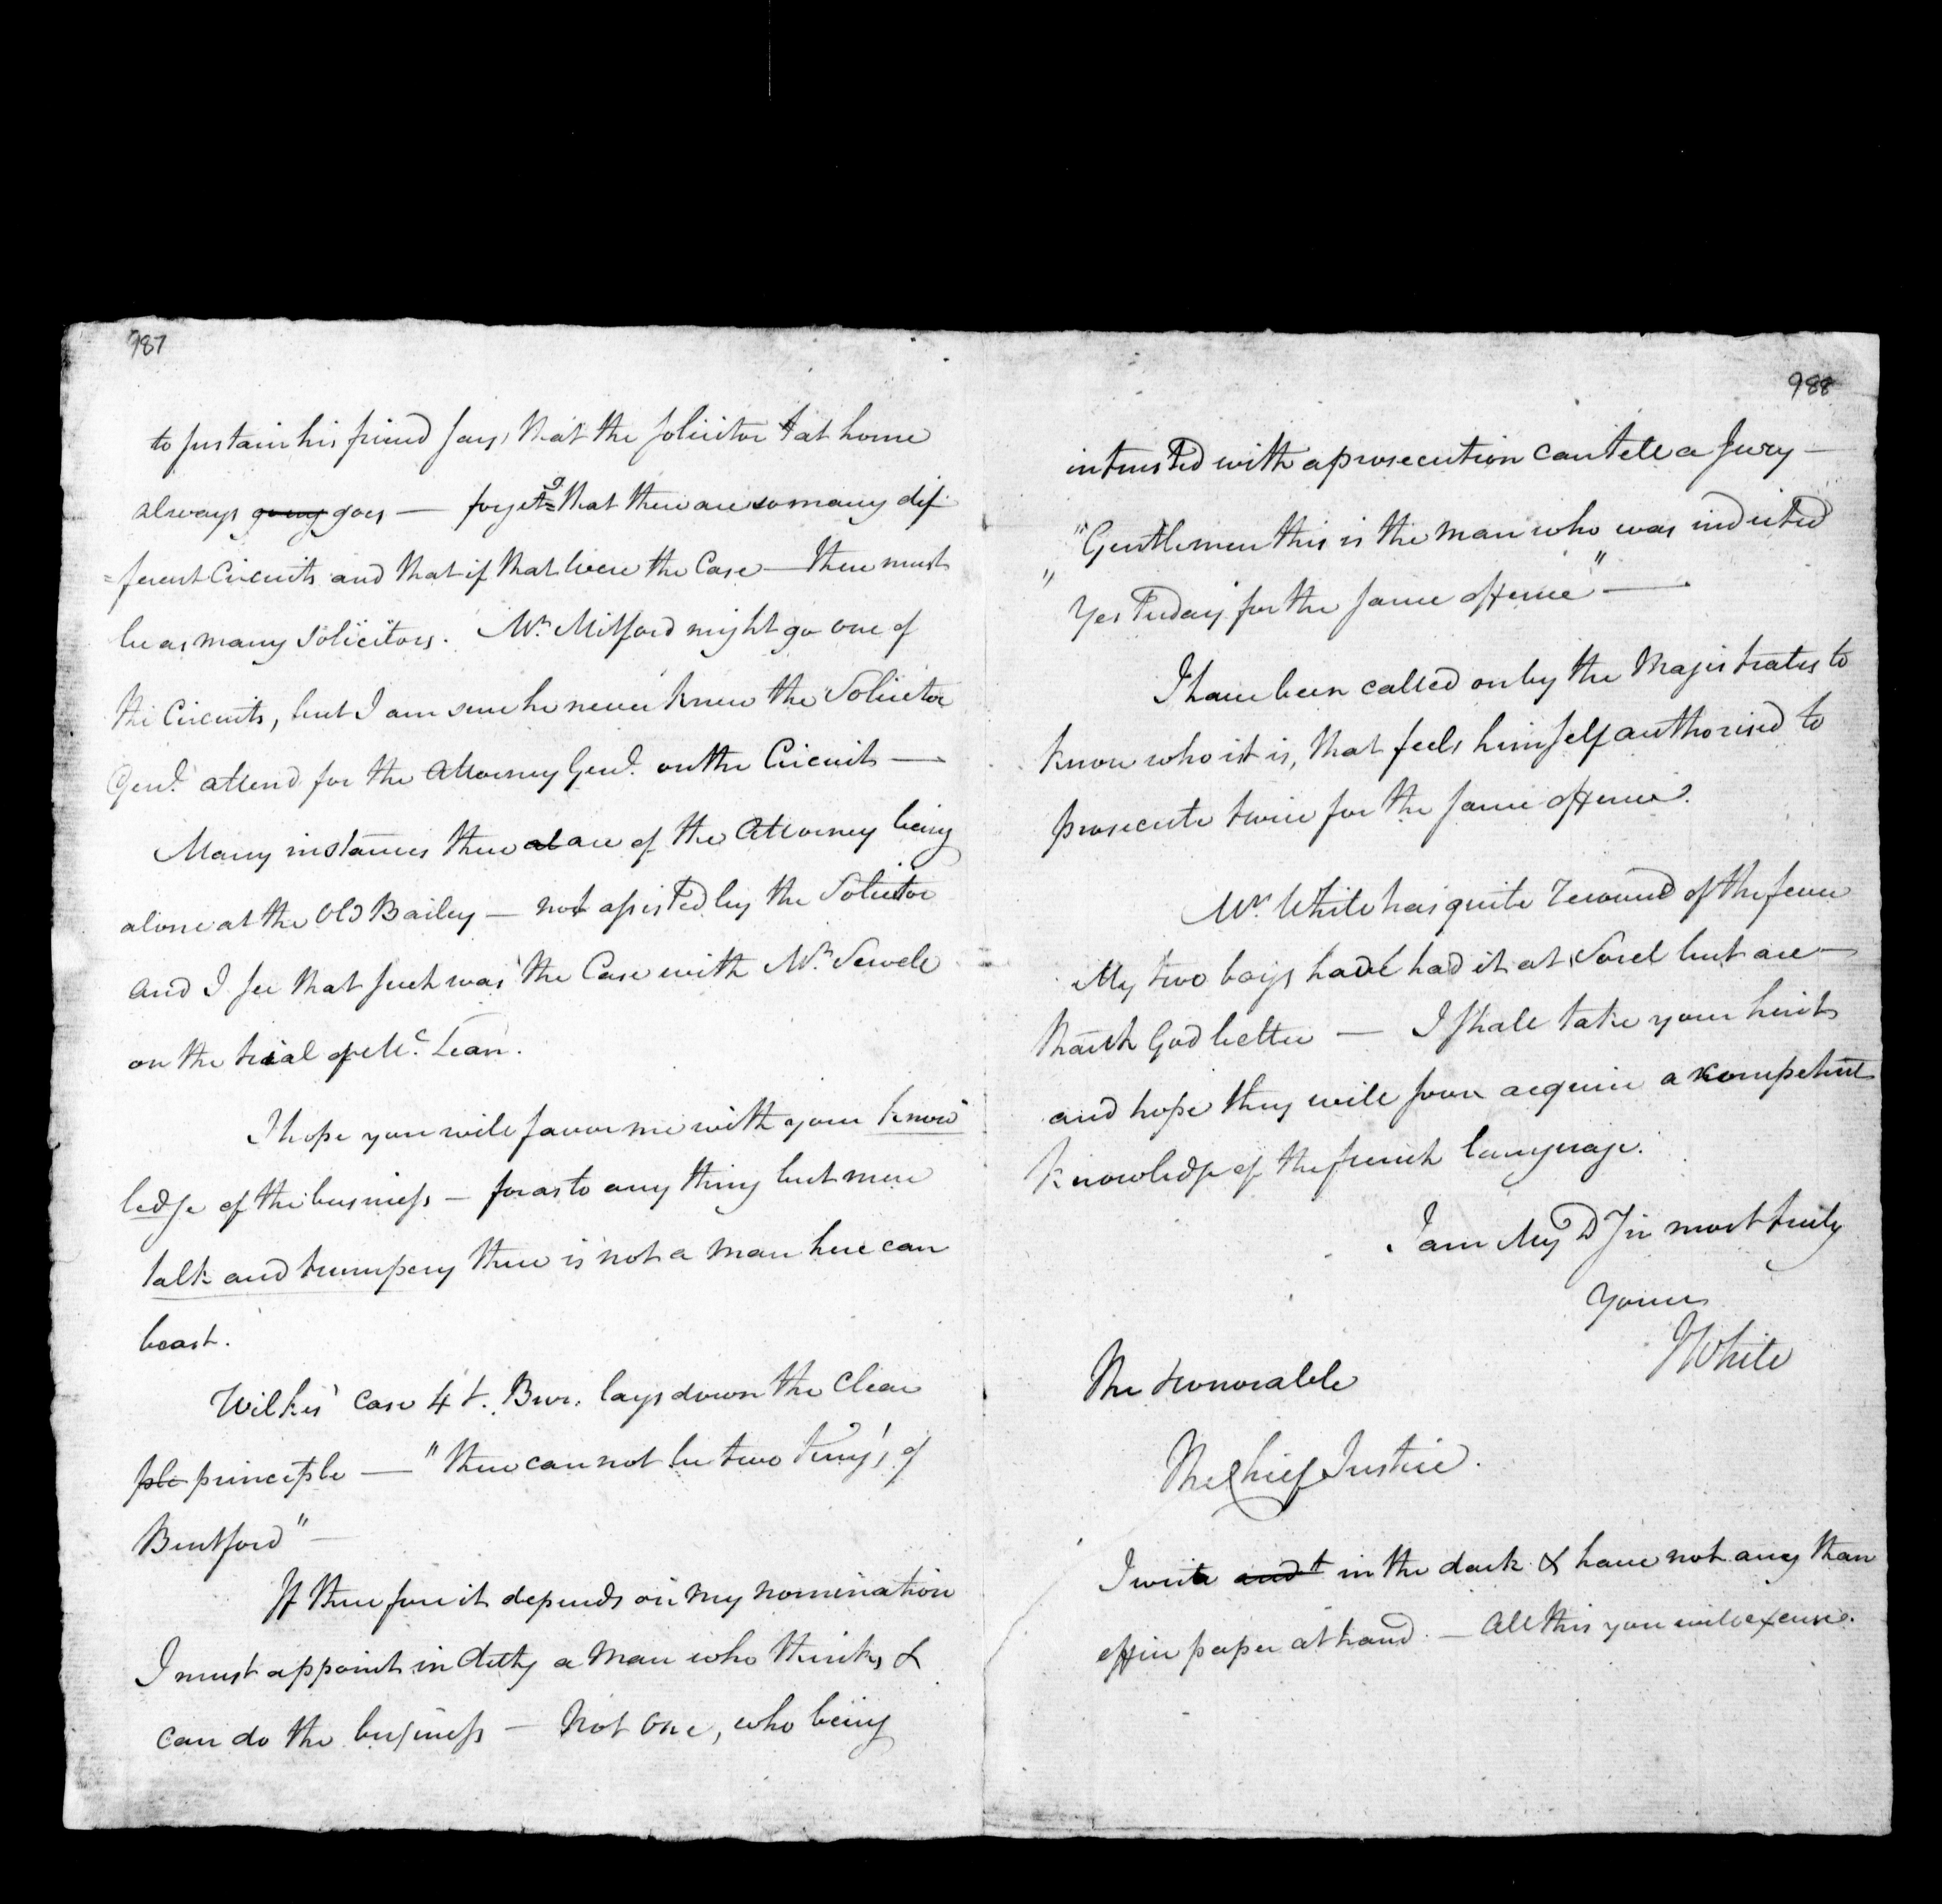 987
to sustain his friend says, that the solicitor at home
always going goes — forgets that there are so many dif
=ferent Circuits and that if that were the Case — there must
be as many Solicitors. Mr. Mitford might go one of
the Circuits, but I am sure he never knew the Solicitor
Genl. attend for the Attorney Genl. on the Circuit —
Many instances there al are of the Attorney being
alone at the Old Bailey — not assisted by the Solicitor
and I see that such was the Case with Mr. Sewell
on the trial of Mc. Lean.
I hope you will favor me with your know
ledge of the business — for as to any thing but mere
talk and trumpery there is not a man here can
boast.
Wilkes' case 4 t. Bur. lays down the clear
ple principle — "there cannot be two Kings of
Brentford" —
If therefore it depends on my nomination
I must appoint in duty a man who thinks &
can do the business — not one, who being
988
intrusted with a prosecution can tell a Jury —
"Gentlemen this is the man who was indicted
" Yesterday for the same offence" —
I have been called on by the Magistrates to
know who it is, that feels himself authorised to
prosecute twice for the same offence.
Mrs. White has quite recovered of the fever
My two boys have had it at Sorel but are —
thank God better — I shall take your hints
and hope they will soon acquire a kompetent
knowledge of the french language.
I am My D Sir most truly
Yours
JWhite
The Honorable
The Chief Justice.
I write and t in the dark & have not any than
office paper at hand. — All this you will excuse.